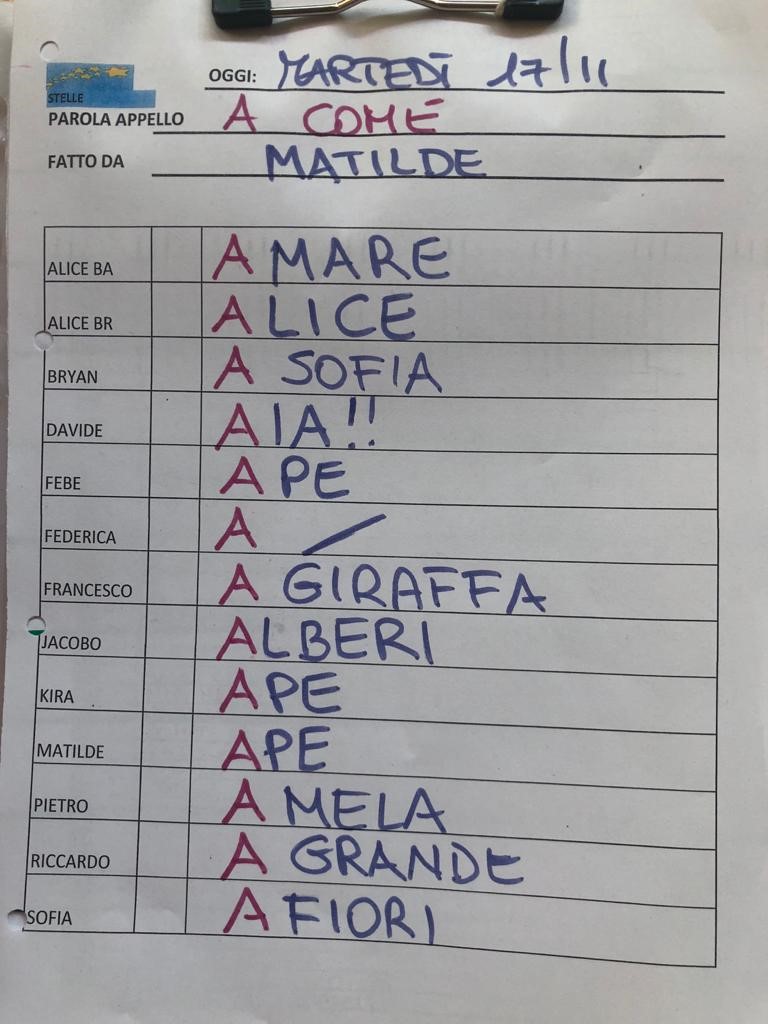 OGGI: MARTEDÌ 17/11
STELLE
PAROLA APPELLO A COME
FATTO DA MATILDE
ALICE BA AMARE
ALICE BR ALICE
BRYAN A SOFIA
DAVIDE AIA!!
FEBE APE
FEDERICA A /
FRANCESCO A GIRAFFA
JACOBO ALBERI
KIRA APE
MATILDE APE
PIETRO A MELA
RICCARDO A GRANDE
SOFIA A FIORI